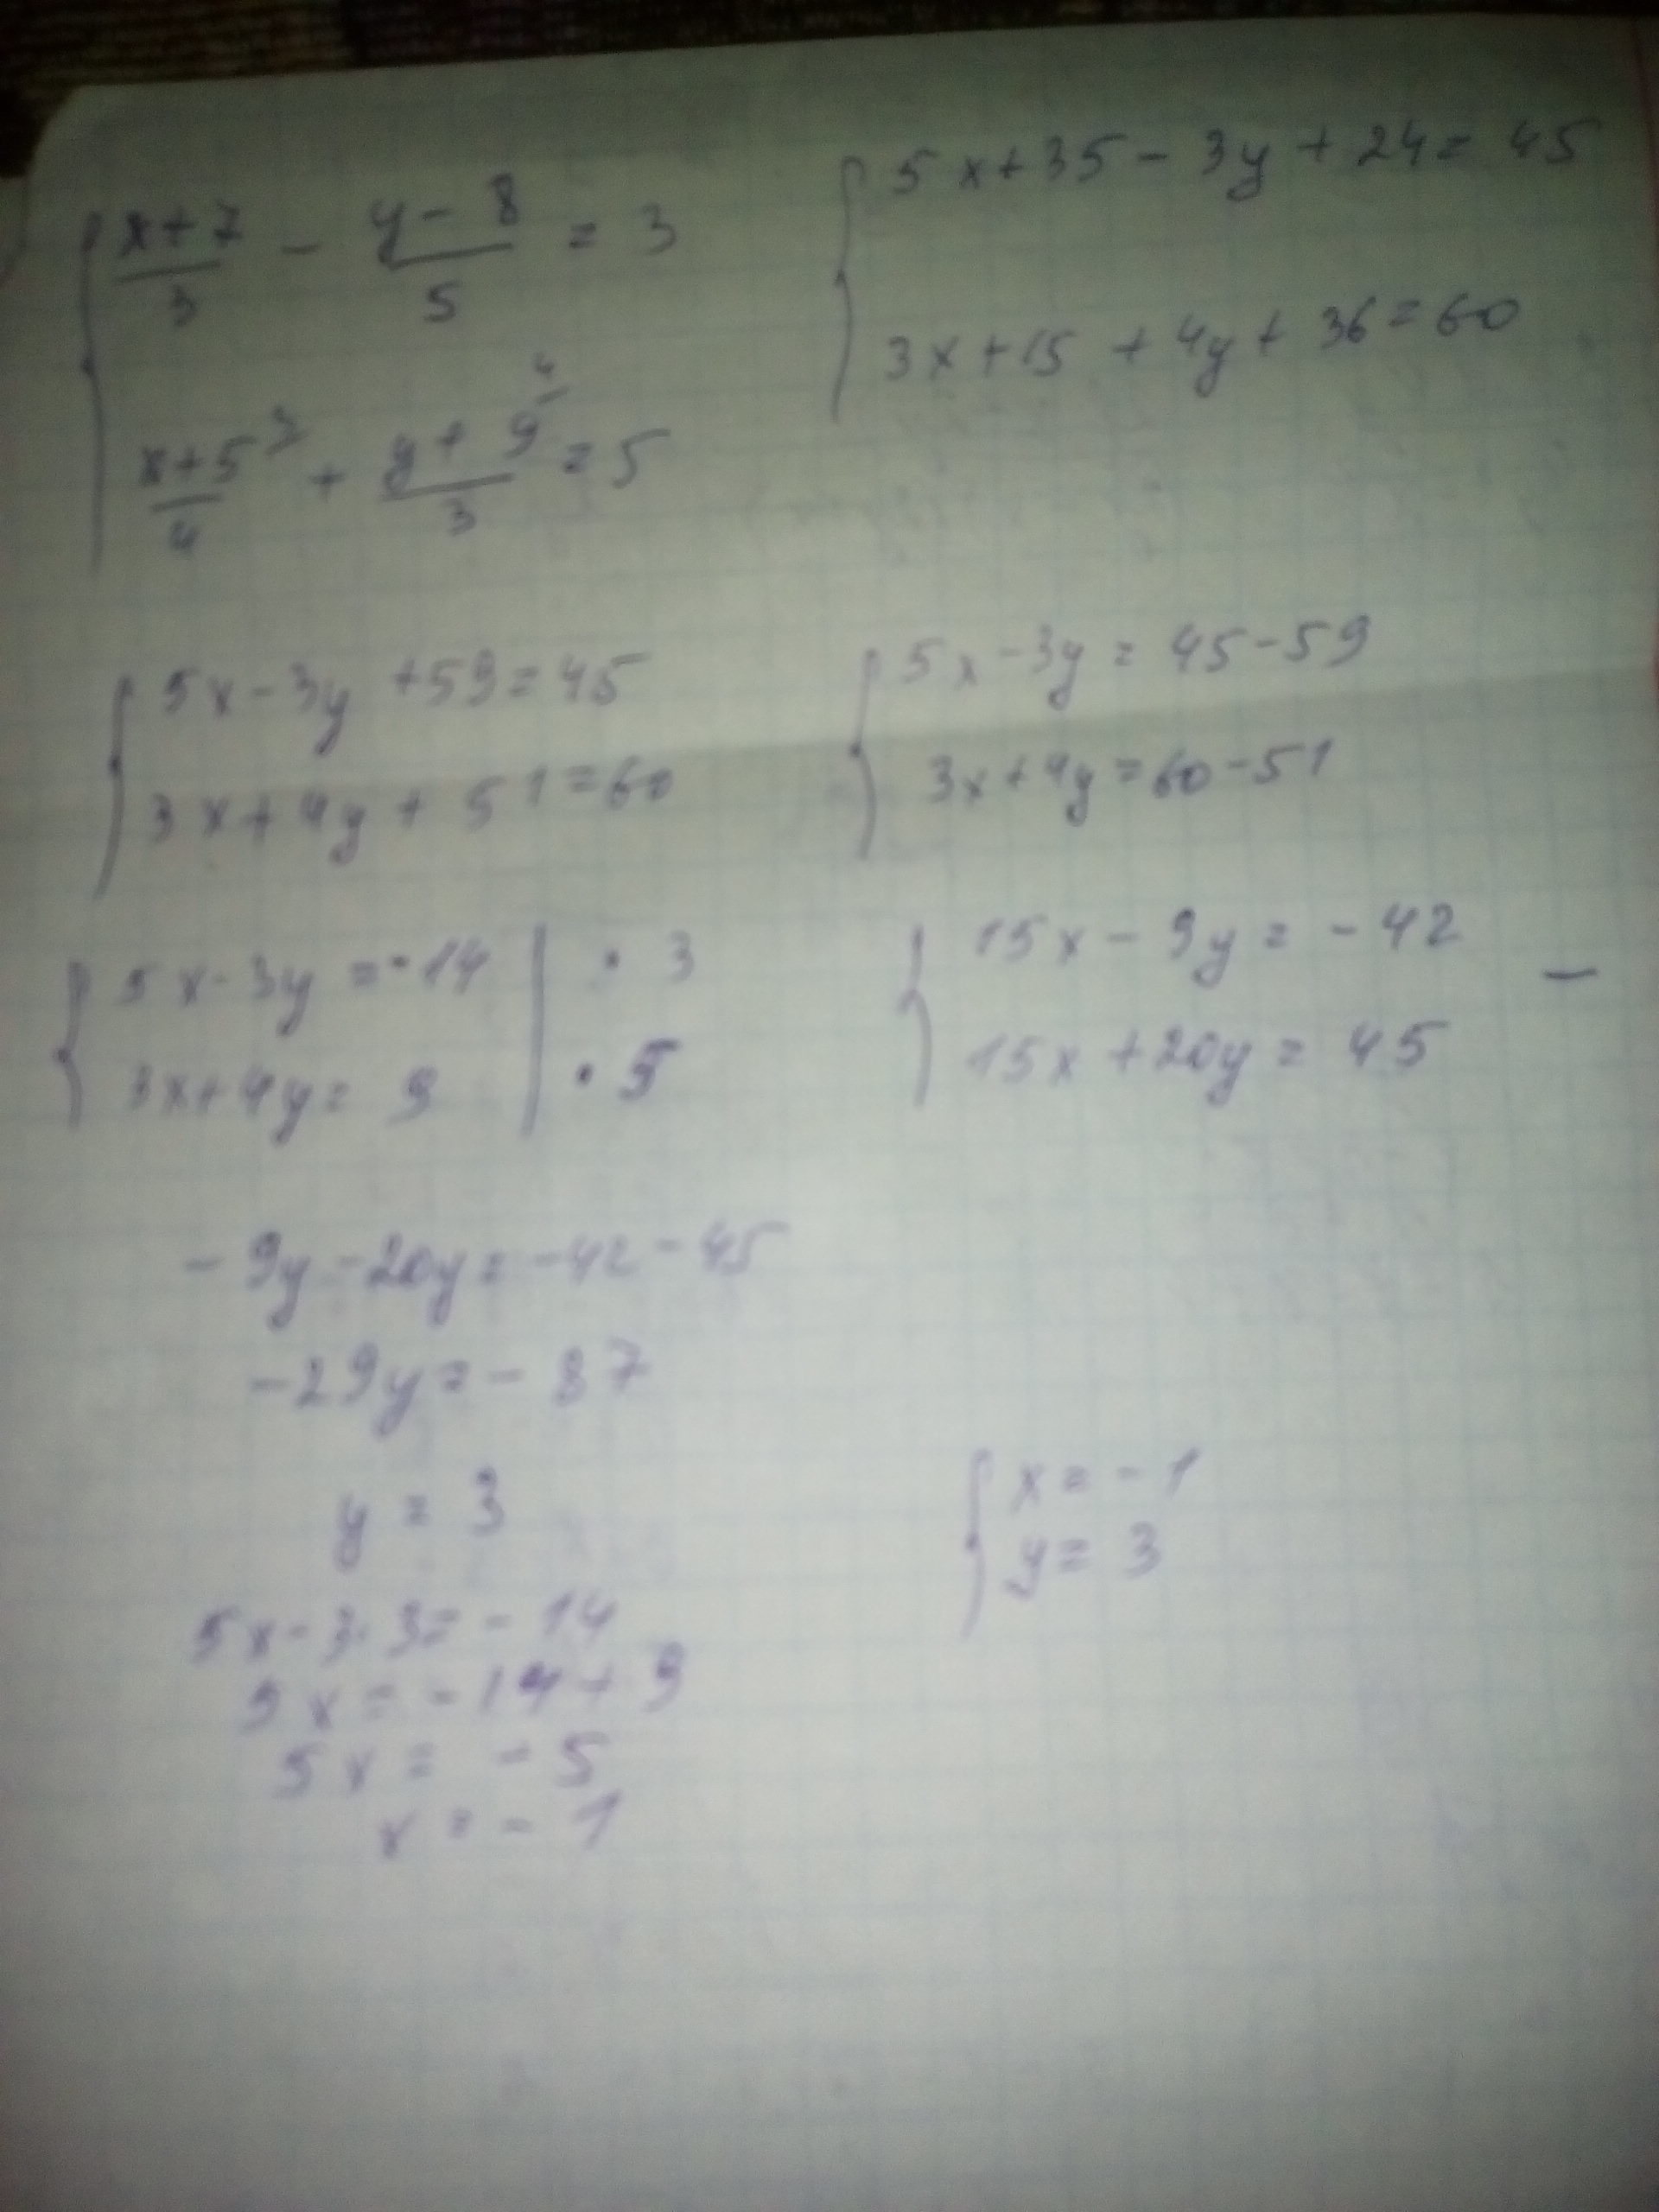 x+7/3 - y-8/5 = 3
x+5/4 + y+9/3 = 5
5x+35-3y+24=45
3x+15+4y+36=60
5x-3y+59=45
3x+4y+51=60
5x-3y=45-59
3x+4y=60-51
5x-3y=-14 | · 3
3x+4y=9 | · 5
15x-9y=-42 -
15x+20y=45
-9y-20y=-42-45
-29y=-87
y=3
5x-3·3=-14
5x=-14+9
5x=-5
x=-1
x=-1
y=3